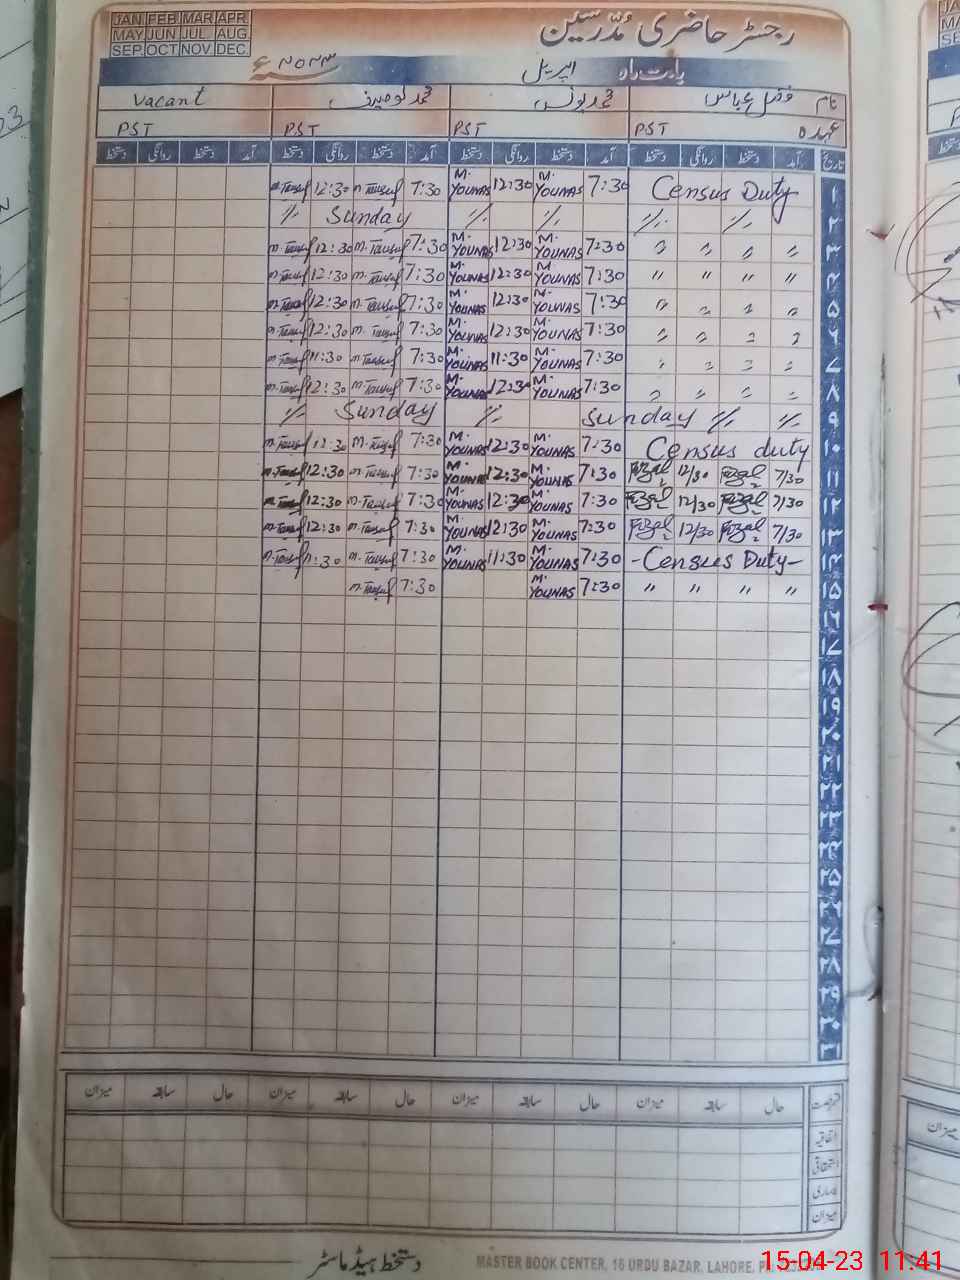 JAN FEB MAR APR
MAY JUN JUL AUG
SEP OCT NOV DEC
رجسٹر حاضری مُدّرسین
بابت ماہ اپریل ۲۰۲۳ سنہ ء
نام فضل عباس محمد یونس Vacant
عہدہ PST PST PST PST
تاریخ آمد دستخط روانگی دستخط آمد دستخط روانگی دستخط آمد دستخط روانگی دستخط آمد دستخط روانگی دستخط
۱ Census Duty 7:30 M. YOUNAS 12:30 M. YOUNAS 7:30 m. Tausuf 12:30 m. Tausuf
۲ 〃 〃 〃 〃 Sunday 〃
۳ 〃 〃 〃 〃 7:30 M. YOUNAS 12:30 M. YOUNAS 7:30 m. Tausuf 12:30 m. Tausuf
۴ 〃 〃 〃 〃 7:30 M. YOUNAS 12:30 M. YOUNAS 7:30 m. Tausuf 12:30 m. Tausuf
۵ 〃 〃 〃 〃 7:30 M. YOUNAS 12:30 M. YOUNAS 7:30 m. Tausuf 12:30 m. Tausuf
۶ 〃 〃 〃 〃 7:30 M. YOUNAS 12:30 M. YOUNAS 7:30 m. Tausuf 12:30 m. Tausuf
۷ 〃 〃 〃 〃 7:30 M. YOUNAS 11:30 M. YOUNAS 7:30 m. Tausuf 11:30 m. Tausuf
۸ 〃 〃 〃 〃 7:30 M. YOUNAS 12:30 M. YOUNAS 7:30 m. Tausuf 12:30 m. Tausuf
۹ 〃 〃 Sunday 〃 Sunday 〃
۱۰ Census duty 7:30 M. YOUNAS 12:30 M. YOUNAS 7:30 M. Tausuf 12:30 m. Tausuf
۱۱ 7/30 Fizal 12/30 Fizal 7:30 M. YOUNAS 12:30 M. YOUNAS 7:30 m. Tausuf 12:30 m. Tausuf
۱۲ 7/30 Fizal 12/30 Fizal 7:30 M. YOUNAS 12:30 M. YOUNAS 7:30 m. Tausuf 12:30 m. Tausuf
۱۳ 7/30 Fizal 12/30 Fizal 7:30 M. YOUNAS 12:30 M. YOUNAS 7:30 m. Tausuf 12:30 m. Tausuf
۱۴ -Census Duty- 7:30 M. YOUNAS 11:30 M. YOUNAS 7:30 m. Tausuf 11:30 m. Tausuf
۱۵ 〃 〃 〃 〃 7:30 M. YOUNAS 7:30 m. Tausuf
۱۶
۱۷
۱۸
۱۹
۲۰
۲۱
۲۲
۲۳
۲۴
۲۵
۲۶
۲۷
۲۸
۲۹
۳۰
۳۱
رخصت حال سابقہ میزان حال سابقہ میزان حال سابقہ میزان حال سابقہ میزان
اتفاقیہ
استحقاقی
بیماری
میزان
دستخط ہیڈ ماسٹر
MASTER BOOK CENTER, 16 URDU BAZAR, LAHORE,
15-04-23 11:41